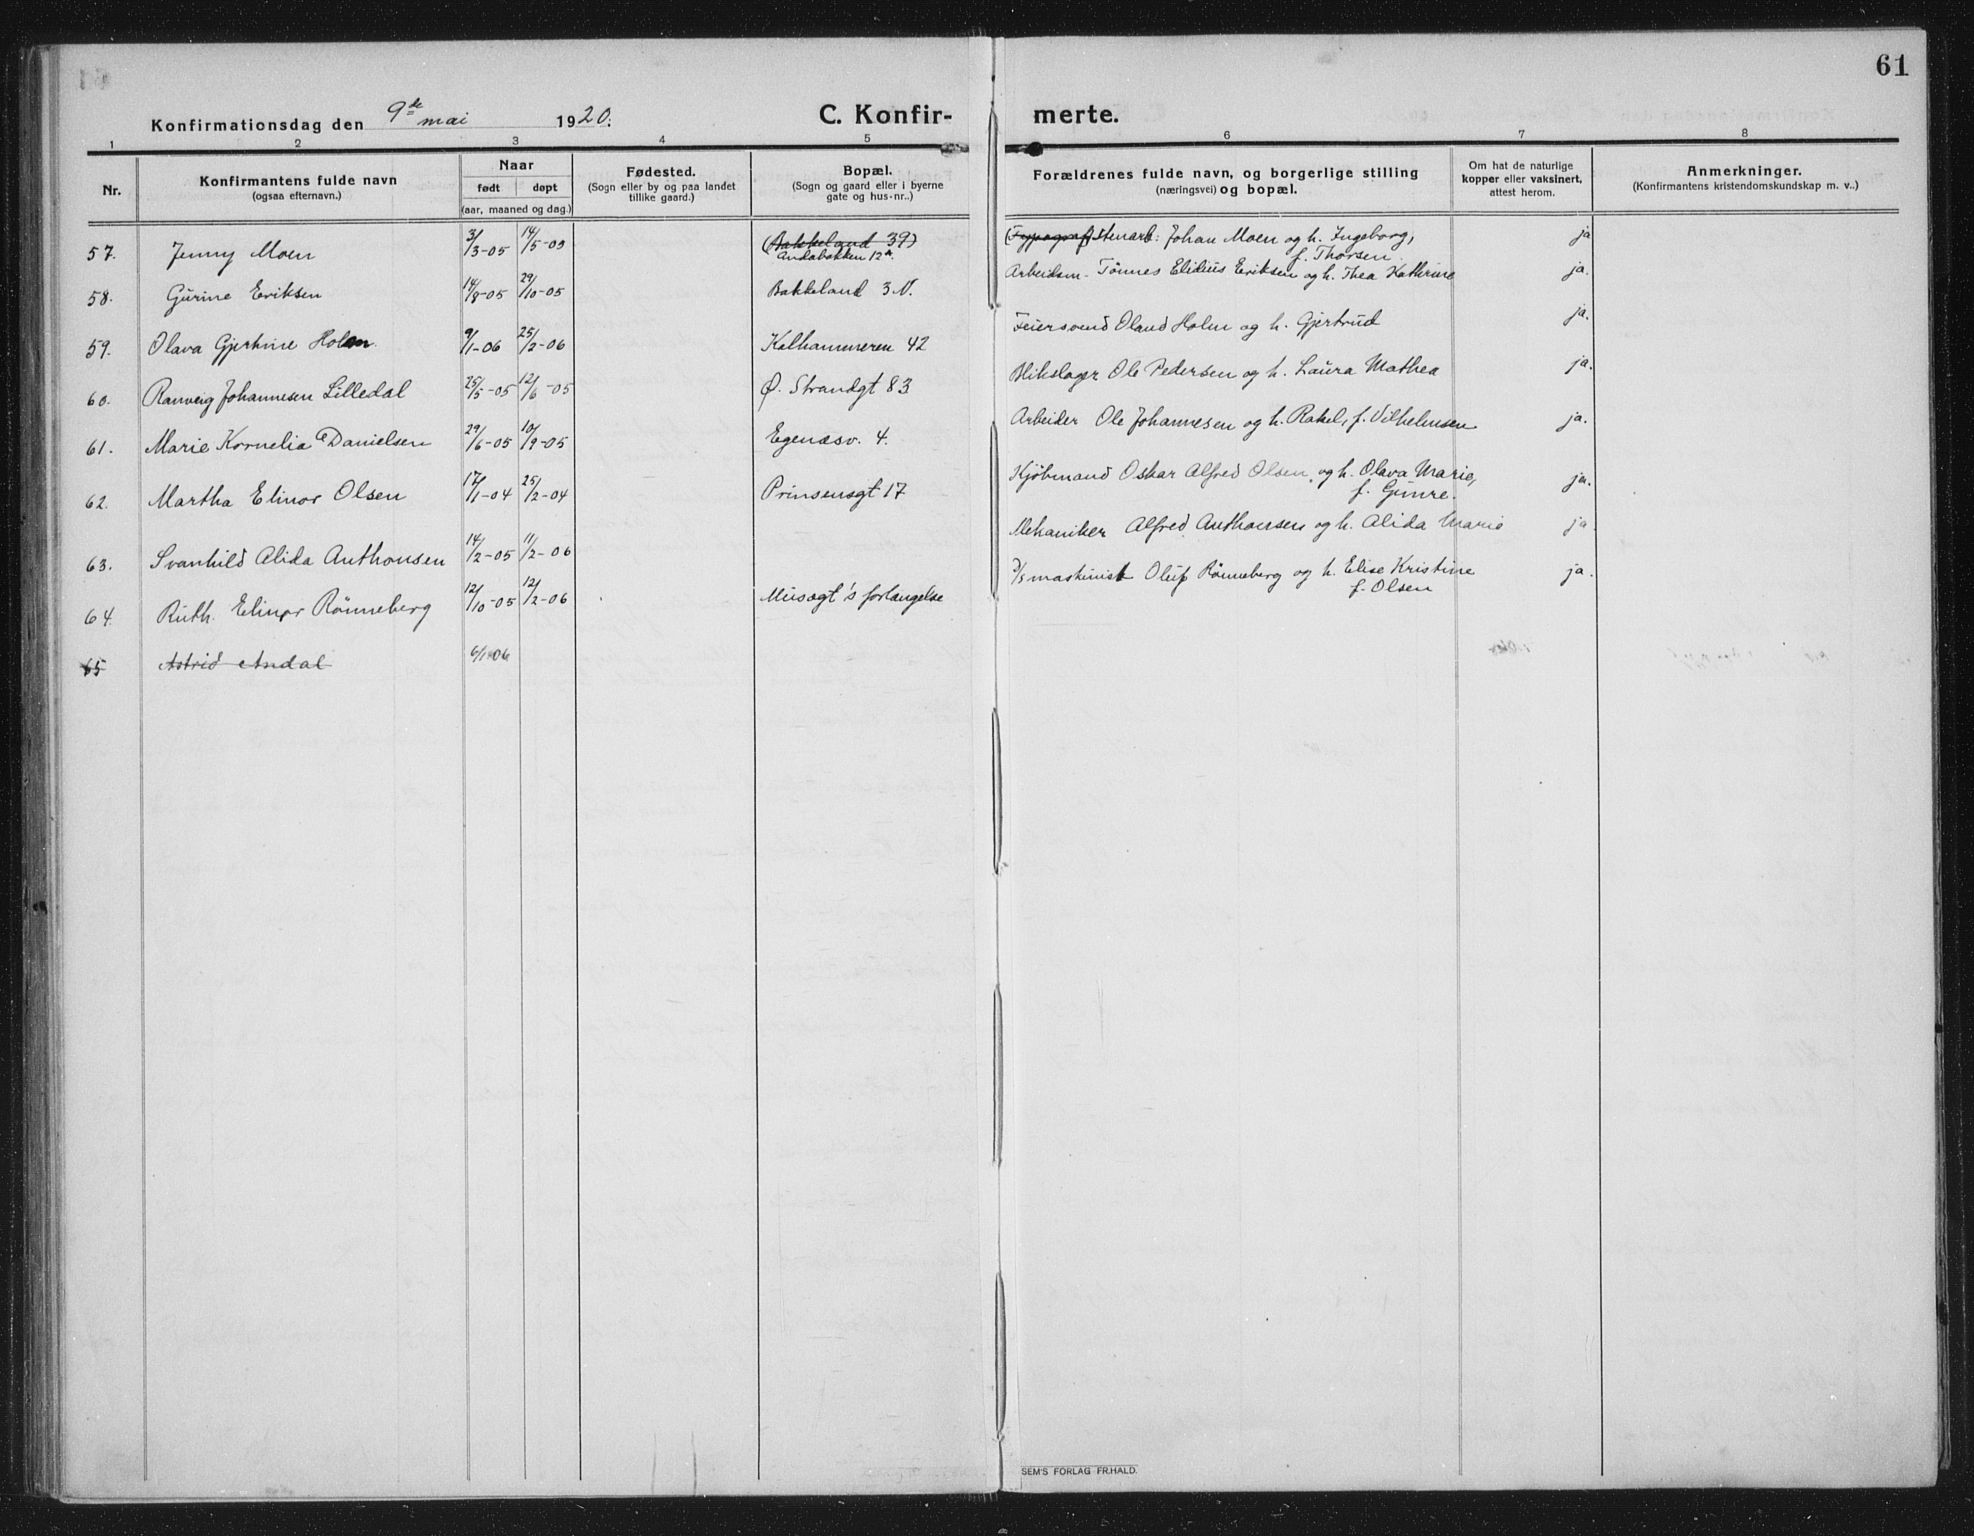 61
Konfirmationsdag den 9de mai 1920.
C. Konfir-merte.
1 2 3 4 5 6 7 8
Nr.
Konfirmantens fulde navn
(ogsaa efternavn.)
Naar
født døpt
(aar, maaned og dag.)
Fødested.
(Sogn eller by og paa landet
tillike gaard.)
Bopæl.
(Sogn og gaard eller i byerne
gate og hus-nr..)
Forældrenes fulde navn, og borgerlige stilling
(næringsvei) og bopæl.
Om hat de naturlige
kopper eller vaksinert,
attest herom.
Anmerkninger.
(Konfirmantens kristendomskundskap m. v..)
57. Jenny Moen 3/3-05 14/5-05 (Bakkeland 39) (Typograf) Stenarb: Johan Moen og h. Ingeborg, ja
12a. f. Thorsen.
58. Gurine Eriksen 14/8-05 29/10-05 Bakkeland 3 N. Arbeidsm- Tönnes Elidius Eriksen og h. Thea Kathrine ja.
59. Olava Gjertine Holm 9/1-06 25/2-06 Kalhammeren 42 Feiersvend Oland Holm og h. Gjertrud ja.
60. Ranveig Johannesen Lilledal 25/5-05 12/6-05 Ø. Strandgt 83 Blikslager Ole Pedersen og h. Laura Mathea ja.
61. Marie Kornelia Danielsen 29/6-05 10/9-05 Egenæsv. 4. Arbeider Ole Johannesen og h. Rakel, f. Vilhelmsen ja.
62. Martha Elinor Olsen 17/1-04 25/2-04 Prinsensgt 17 Kjöbmand Oskar Alfred Olsen, og h. Olava Marie, ja.
f. Gimre.
63. Svanhild Alida Anthonsen 14/2-05 11/2-06 Mekaniker Alfred Anthonsen og h. Alida Marie ja
64. Ruth. Elinor Rönneberg 12/10-05 12/2-06 Musegt's forlængelse D/s maskinist Oluf Rönneberg og h. Elise Kristine ja.
f. Olsen
65 Astrid Andal 6/1-06
SEM'S FORLAG FR.HALD.